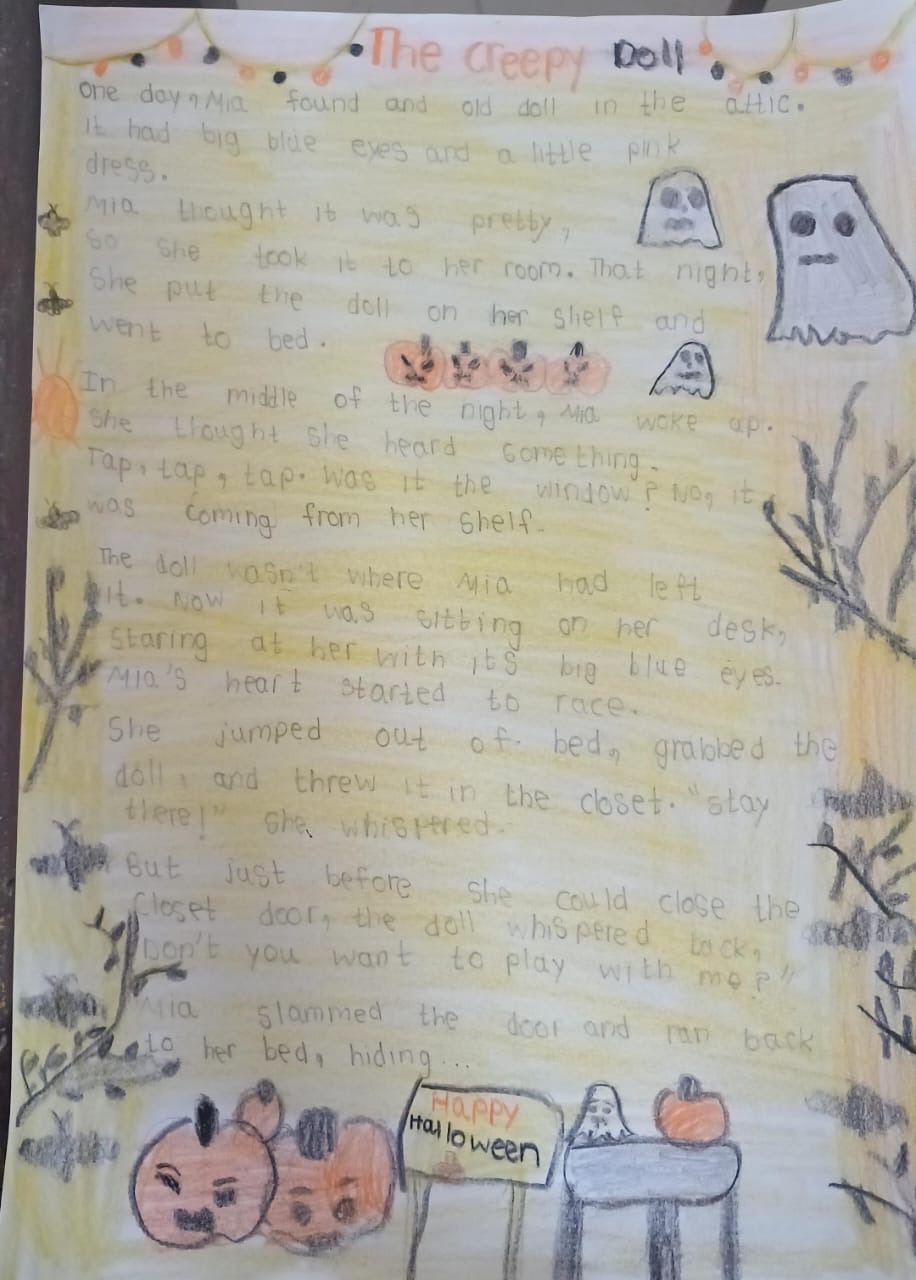 The Creepy Doll
One day, Mia found and old doll in the attic.
It had big blue eyes and a little pink
dress.
Mia thought it was pretty,
So she took it to her room. That night,
She put the doll on her shelf and
went to bed.
In the middle of the night, Mia woke up.
She thought she heard something.
Tap, tap, tap. Was it the window? No, it
was coming from her shelf.
The doll wasn't where Mia had left
it. Now it was sitting on her desk,
staring at her with its big blue eyes.
Mia's heart started to race.
She jumped out of bed, grabbed the
doll, and threw it in the closet. "stay
there!" she whispered.
But just before she could close the
closet door, the doll whispered back,
Don't you want to play with me?"
Mia slammed the door and ran back
to her bed, hiding....
Happy
Halloween